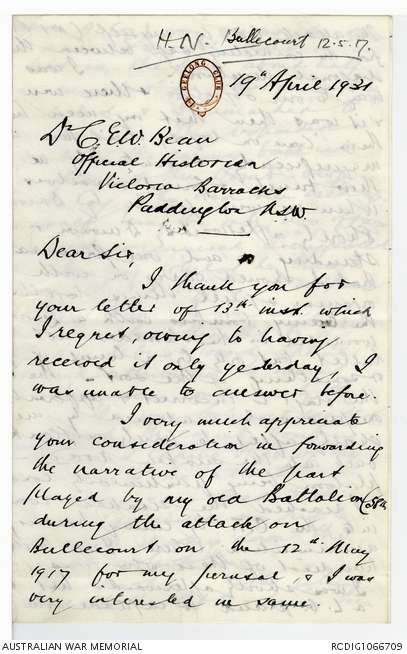 H.N. Bullecourt 12.5.17.
GEELONG CLUB
19th April 1931
Dr C.E.W. Bean
Official Historian
Victoria Barracks
Paddington N.S.W.
Dear Sir,
I thank you for
your letter of 13th inst. which
I regret, owing to having
received it only yesterday, I
was unable to answer before.
I very much appreciate
your consideration in forwarding
the narrative of the part
played by my old Battalion (58th)
during the attack on
Bullecourt on the 12th May
1917 for my perusal, & I was
very interested in same.
AUSTRALIAN WAR MEMORIAL
RCDIG1066709